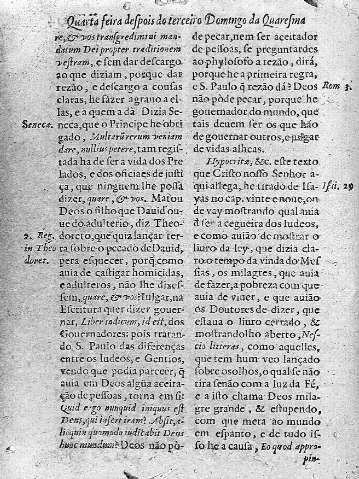 Quarta feira despois do terceiro Domingo da Quaresma
re, & vos transgredimini man-
datum Dei propter traditionem
vestram, e sem dar descargo
ao que diziam, porque dar
rezão, e descargo a cousas
claras, he fazer agrauo a el-
las, e a quem a dà Dizia Se-
neca, que o Principe he obri
gado, Multarũ rerum veniam
dare, nullius petere, tam regi-
stada ha de ser a vida dos Pre
lados, e dos officiaes de justi
ça, que ninguem lhe possa
dizer, quare, & vos. Matou
Deos o filho que Dauid ou-
ue do adulterio, diz Theo-
doreto, que quis lançar ter-
ra sobre o pecado de Dauid,
pera esquecer, porq̃ como
auia de castigar homicidas,
e adulterios, não lhe dixes-
sem, quare, & vos? Iulgar, na
Escritura quer dizer gouer-
nar, Liber iudicum, id est, dos
Gouernadores: pois tratan-
do S. Paulo das diferenças
entre os Iudeos, e Gentios,
vendo que podia parecer, q̃
auia em Deos algũa aceita-
ção de pessoas, torna em si:
Quid ergo nunquid iniquus est
Deus, qui infert iram? Absit, a-
lioquin quomodo iudicabit Deus
hunc mundum? Deos não pò-
Seneca.
2. Reg.
Theo
doret.
de pecar, nem ser aceitador
de pessoas, se preguntardes
ao phylosofo a rezão, dirá,
porque he a primeira regra,
e S. Paulo q̃ rezão dâ? Deos
não pòde pecar, porque he
gouernador do mundo, que
tais deuem ser os que hão
de gouernar outros, e julgar
de vidas alheas.
Hypocritæ, &c. este texto
que Cristo nosso Senhor a-
qui allega, he tirado de Isa-
yas no cap. vinte e noue, on-
de vay mostrando qual auia
d ser a cegueira dos Iudeos,
e como auião de mostrar o
liuro da ley, que dizia cla-
ro o tempo da vinda do Mes
sias, os milagres, que auia
de fazer, a pobreza com que
auia de viuer, e que auião
os Doutores de dizer, que
estaua o liuro cerrado, &
mostrandolho aberto, Nes-
cio litteras, como aquelles,
que tem hum veo lançado
sobre os olhos, o qual se não
tira senão com a luz da Fé,
e a isto chama Deos mila-
gre grande, & estupendo,
com que mera ao mundo
em espanto, e de tudo is-
so he a causa, Eo quod appro-
pin-
Rom 3.
Isai. 29